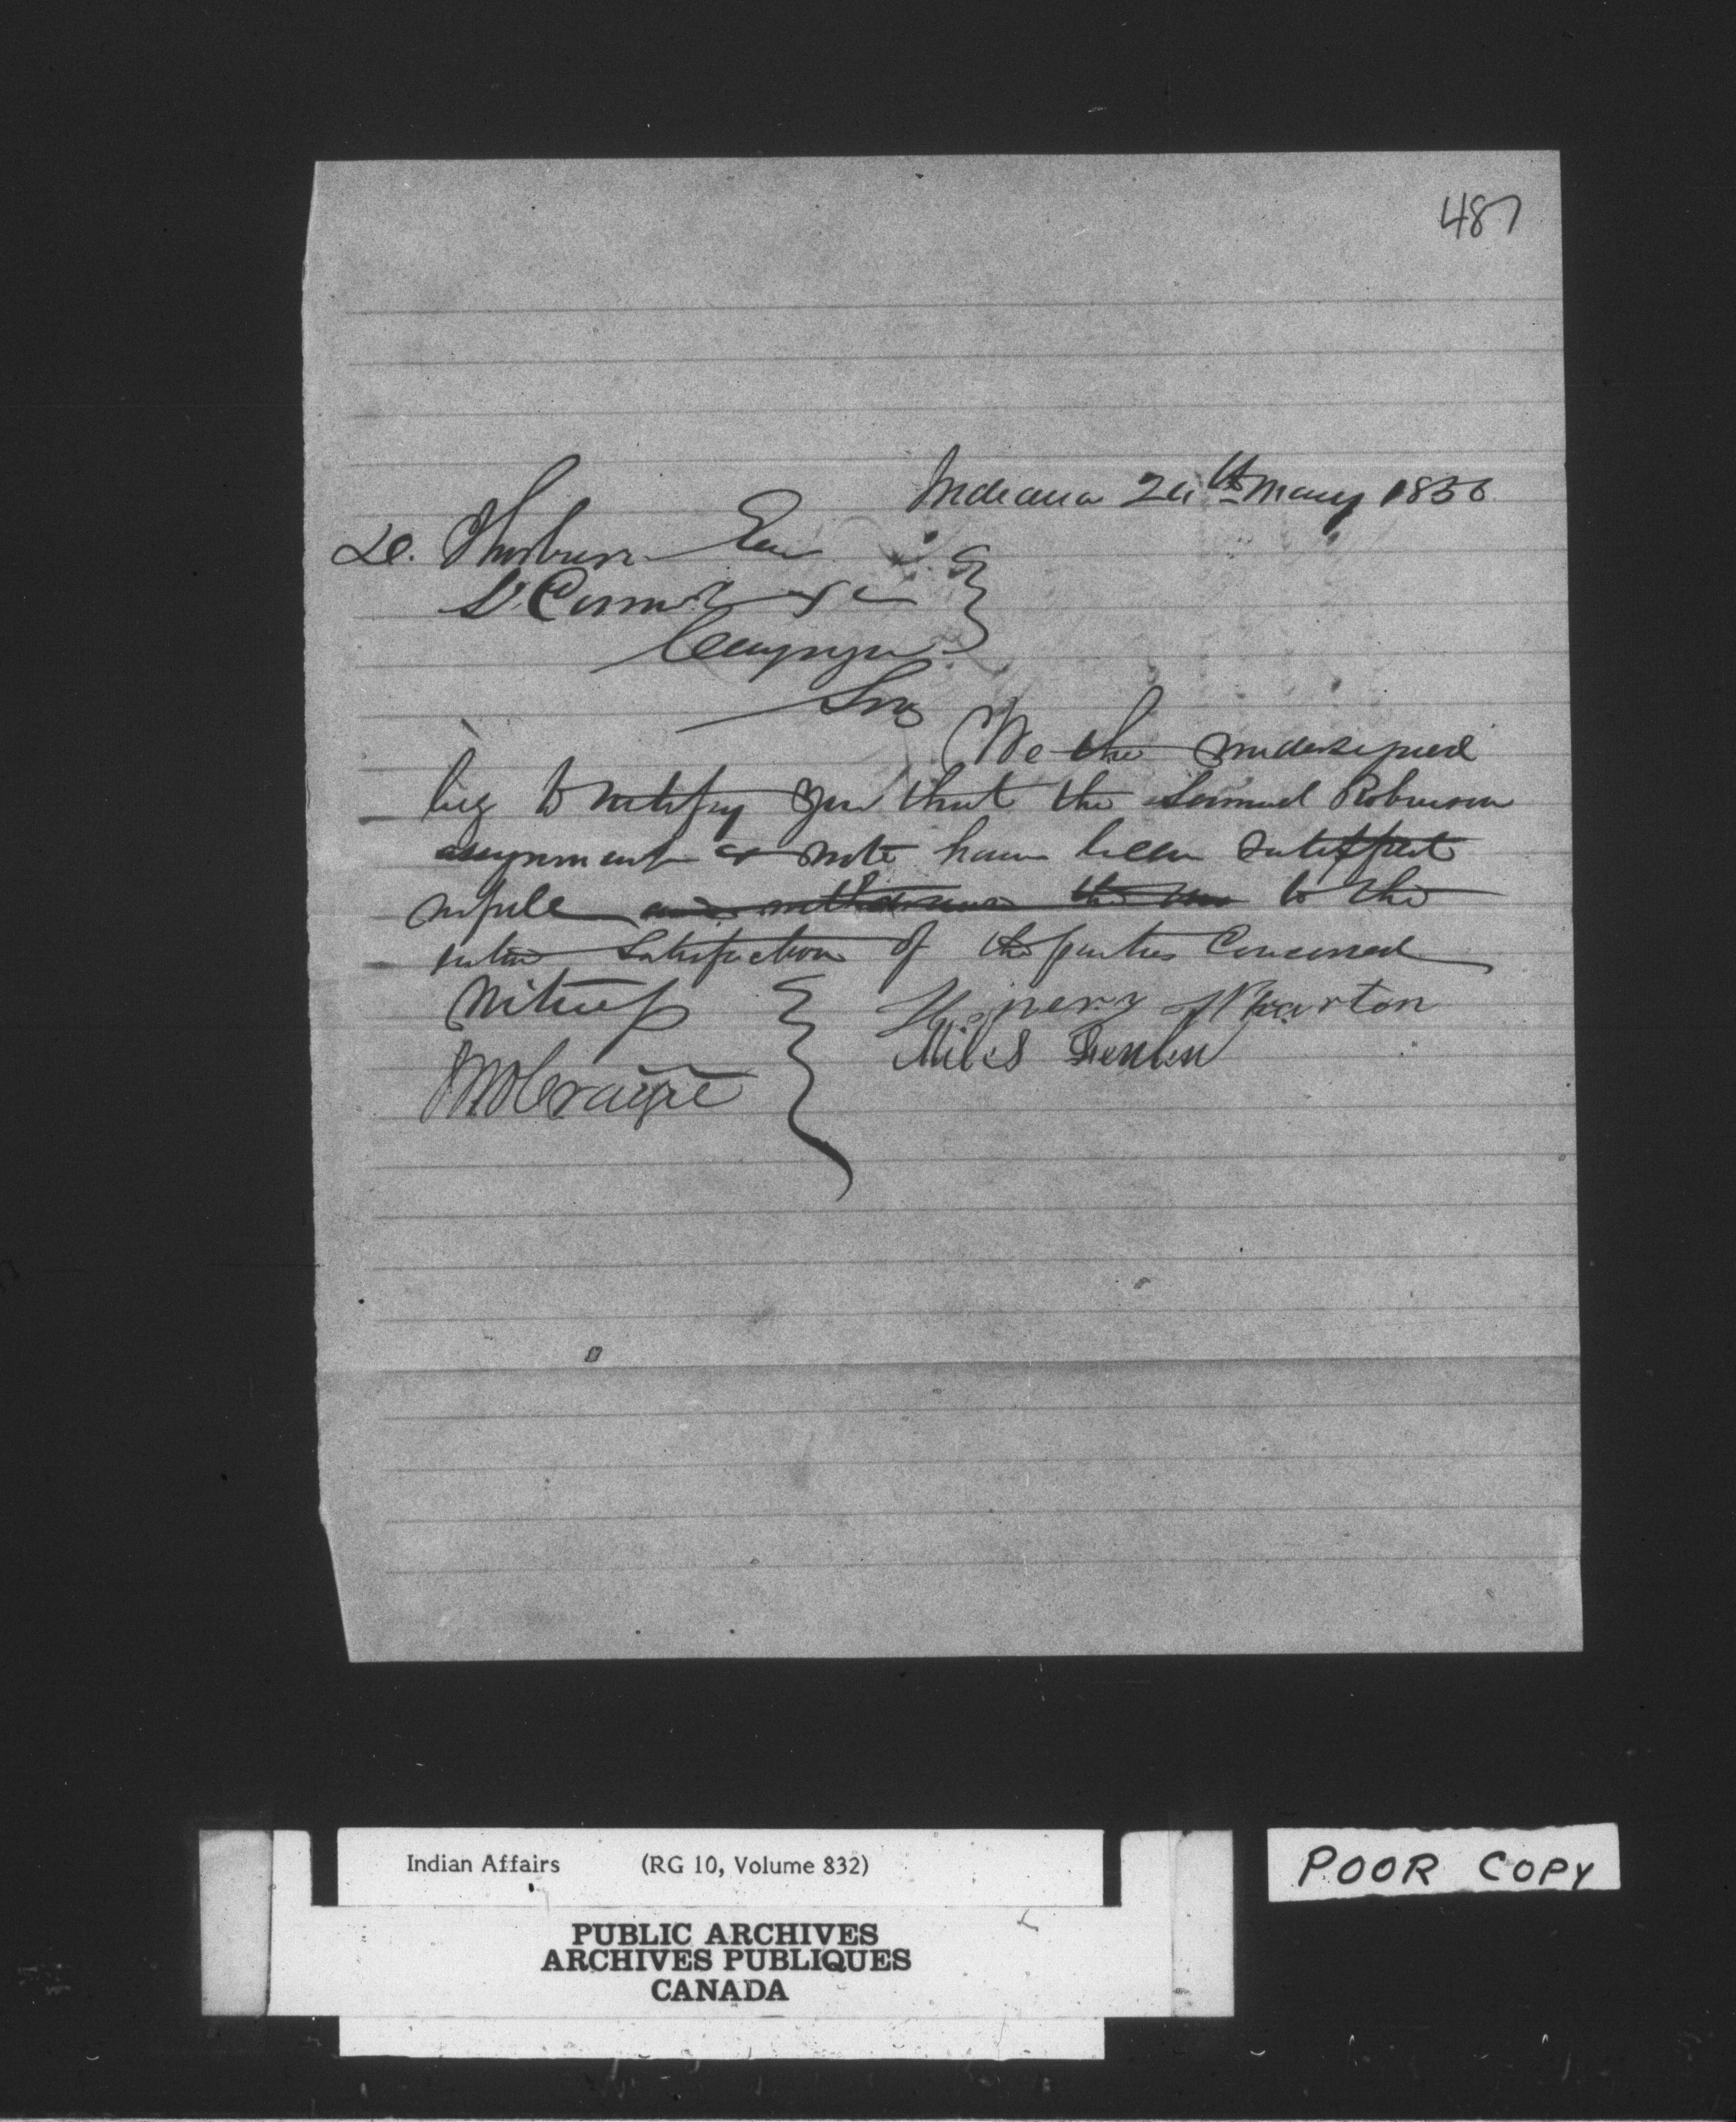 487
Indiana 24th May 1856
D. Thorburn Esq
Cayuga
Sir
We the undersigned
beg to notify you that the Samuel Robinson
assignment & note have been
to the
entire Satisfaction of the parties Concerned
Witness
Henery Wharton
Miles
Indian Affairs (RG 10, Volume 832)
PUBLIC ARCHIVES
ARCHIVES PUBLIQUES
CANADA
POOR COPY